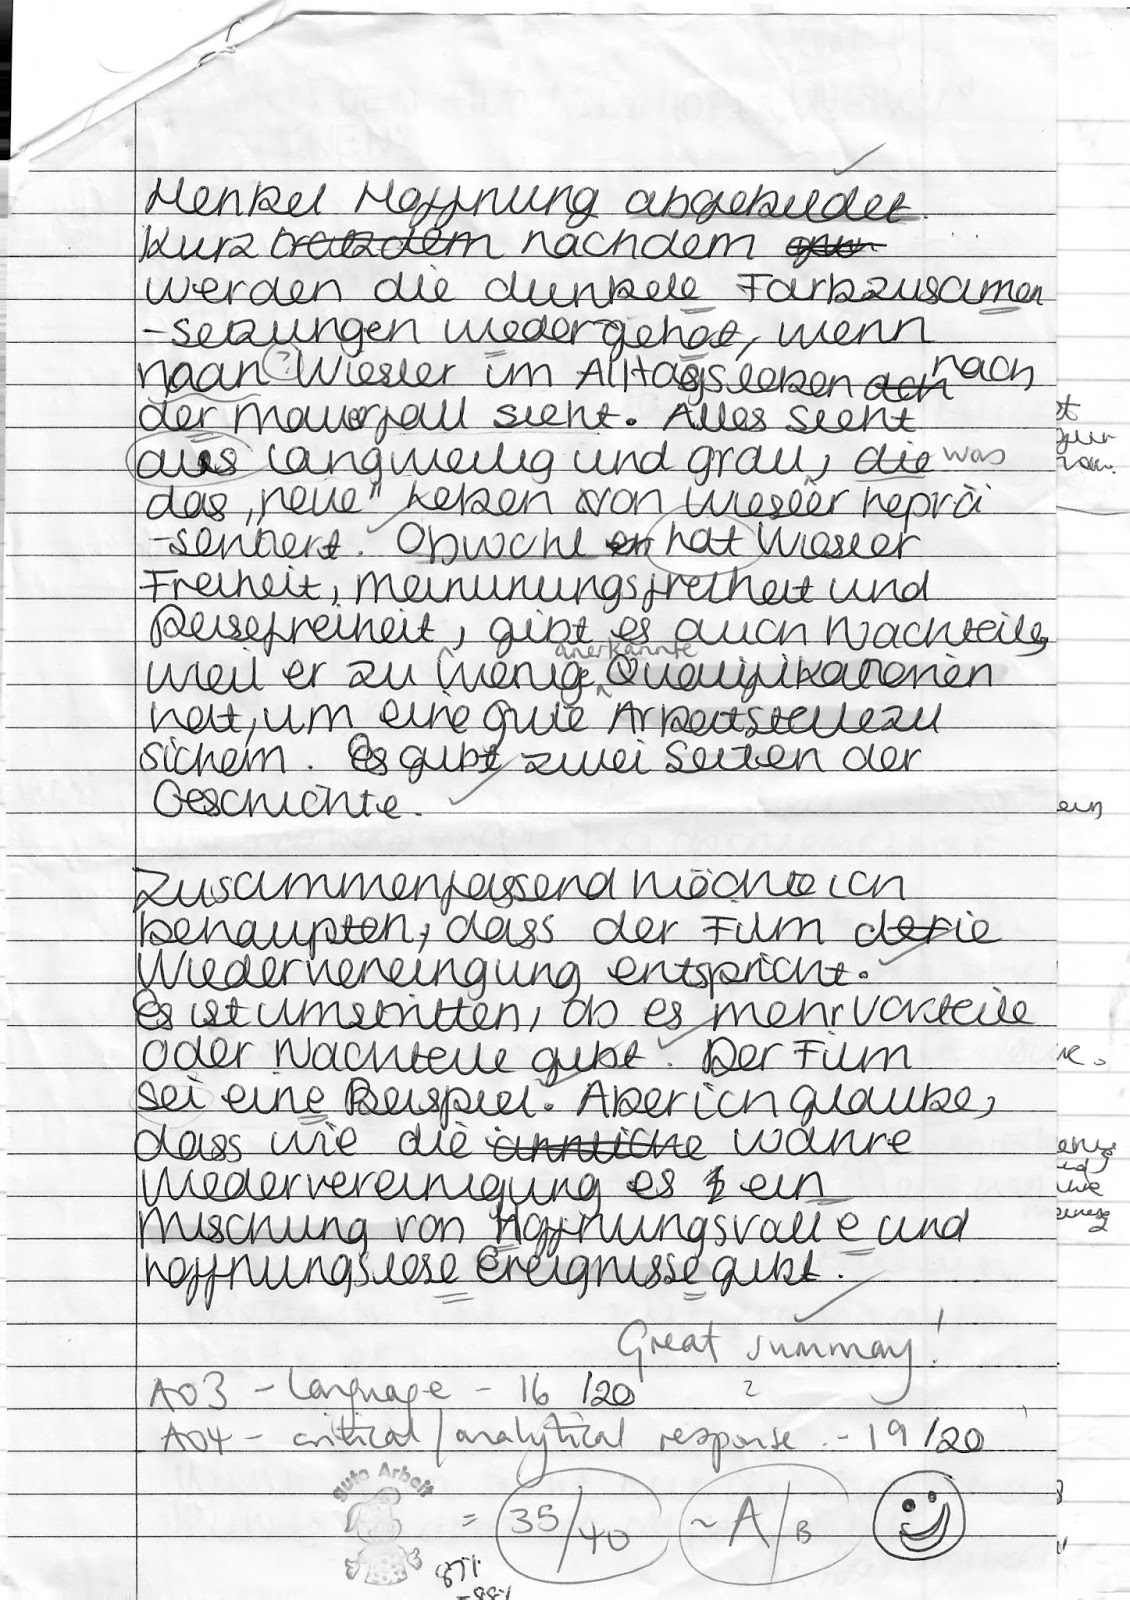 Henkel Hoffnung abgebildet.
Kurz trotzdem nachdem
werden die dunkele Farbzusamen
-setzungen wiedergehat, wenn
man ? Wiesler im Alltagsleben nach
der Mauerfall sieht. Alles sieht
aus langweilig und grau, die was
das „neue" Leben von Wiesler reprä
-sentiert. Obwohl er hat Wiesler
Freiheit, Meinunungsfreiheit und
Reisefreiheit, gibt es auch Nachteile,
anerkannte
weil er zu wenig Qualifikationen
hat, um eine gute Arbeitstelle zu
sichern. Es gibt zwei Seiten der
Geschichte.
Zusammenfassend möchte ich
behaupten, dass der Film der die
Wiedervereingung entspricht.
Es ist umstritten, ob es mehr Vorteile
oder Nachteile gibt. Der Film
sei eine Beispiel. Aber ich glaube,
dass wie die ähnliche wahre
Wiedervereinigung es ein
Mischung von Hoffnungsvolle und
hoffnungslose Ereignisse gibt.
Great summary!
AO3 - language - 16/20
AO4 - critical/analytical response - 19/20
gute Arbeit
= 35/40 ~A/B